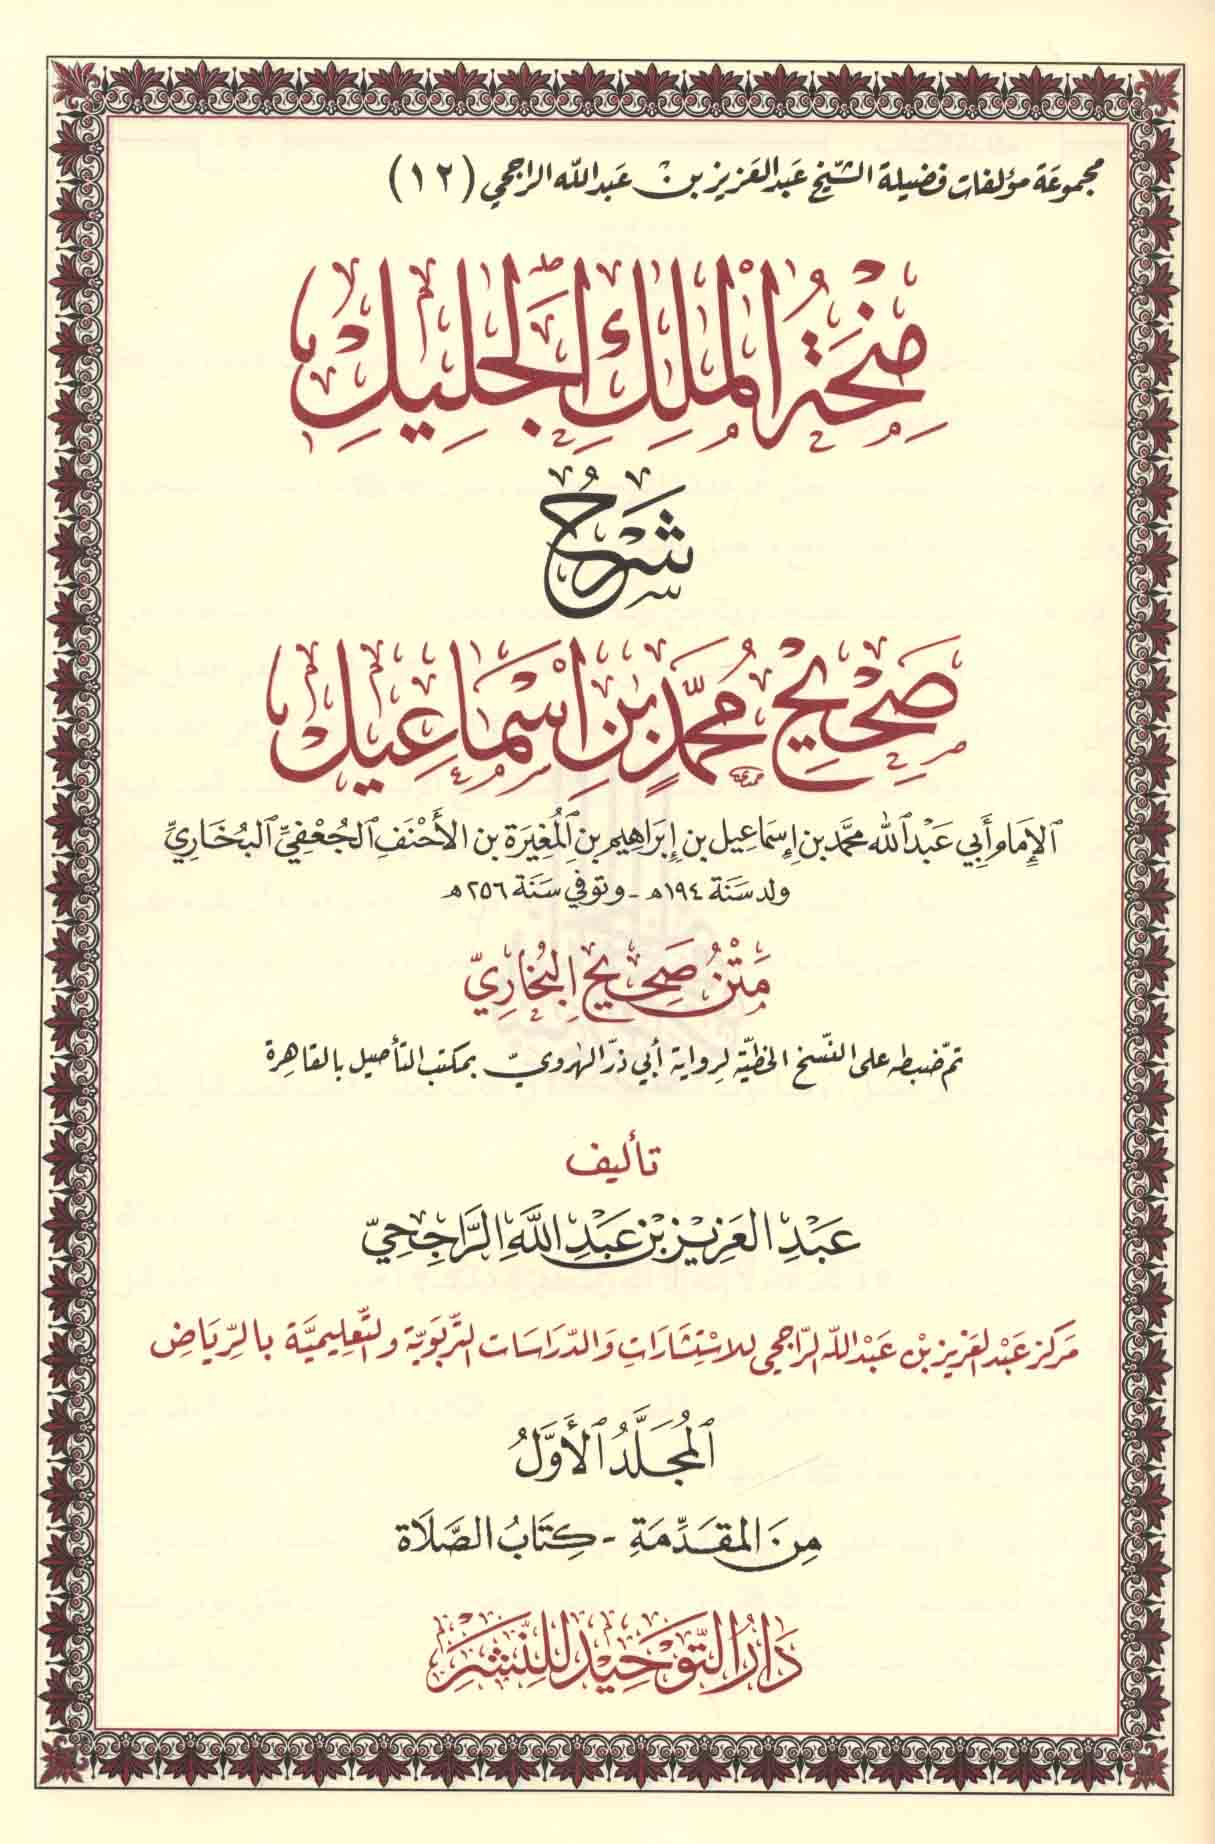 مجموعة مؤلفات فضيلة الشيخ عبد العزيز بن عبد الله الراجحي (١٢)
مِنْحَةُ الْمَلِكِ الْجَلِيلِ
شَرْحُ
صَحِيْحِ مُحَمَّدِ بْنِ إِسْمَاعِيلَ
الإِمَامِ أَبِي عَبْدِ اللَّهِ مُحَمَّد بن إِسمَاعِيل بن إِبرَاهِيم بن المُغِيرَة بن الأَحْنَفِ الجُعْفِيِّ البُخَارِيِّ
ولد سَنَة ١٩٤هـ - وتوفي سَنَة ٢٥٦هـ
مَتْنُ صَحِيحِ البُخَارِيِّ
تمّ ضبطه على النّسخ الخطيّة لِرواية أبي ذرّ الهرويّ بمكتب التأصيل بالقاهِرة
تأليف
عَبْدِ العَزِيْزِ بْنِ عَبْدِ اللَّهِ الرَّاجِحِيّ
مَركز عَبْد العَزيز بْن عَبْد اللّه الرّاجحي للاسْتِشَارَاتِ وَالدِّرَاسَات التّربَويّة والتّعليميَّة بالرِّيَاضِ
المُجَلَّدُ الأَوَّلُ
مِنَ المقَدِّمَةِ - كِتَابُ الصَّلَاة
دَارُ التَّوْحِيْدِ لِلنَّشْرِ